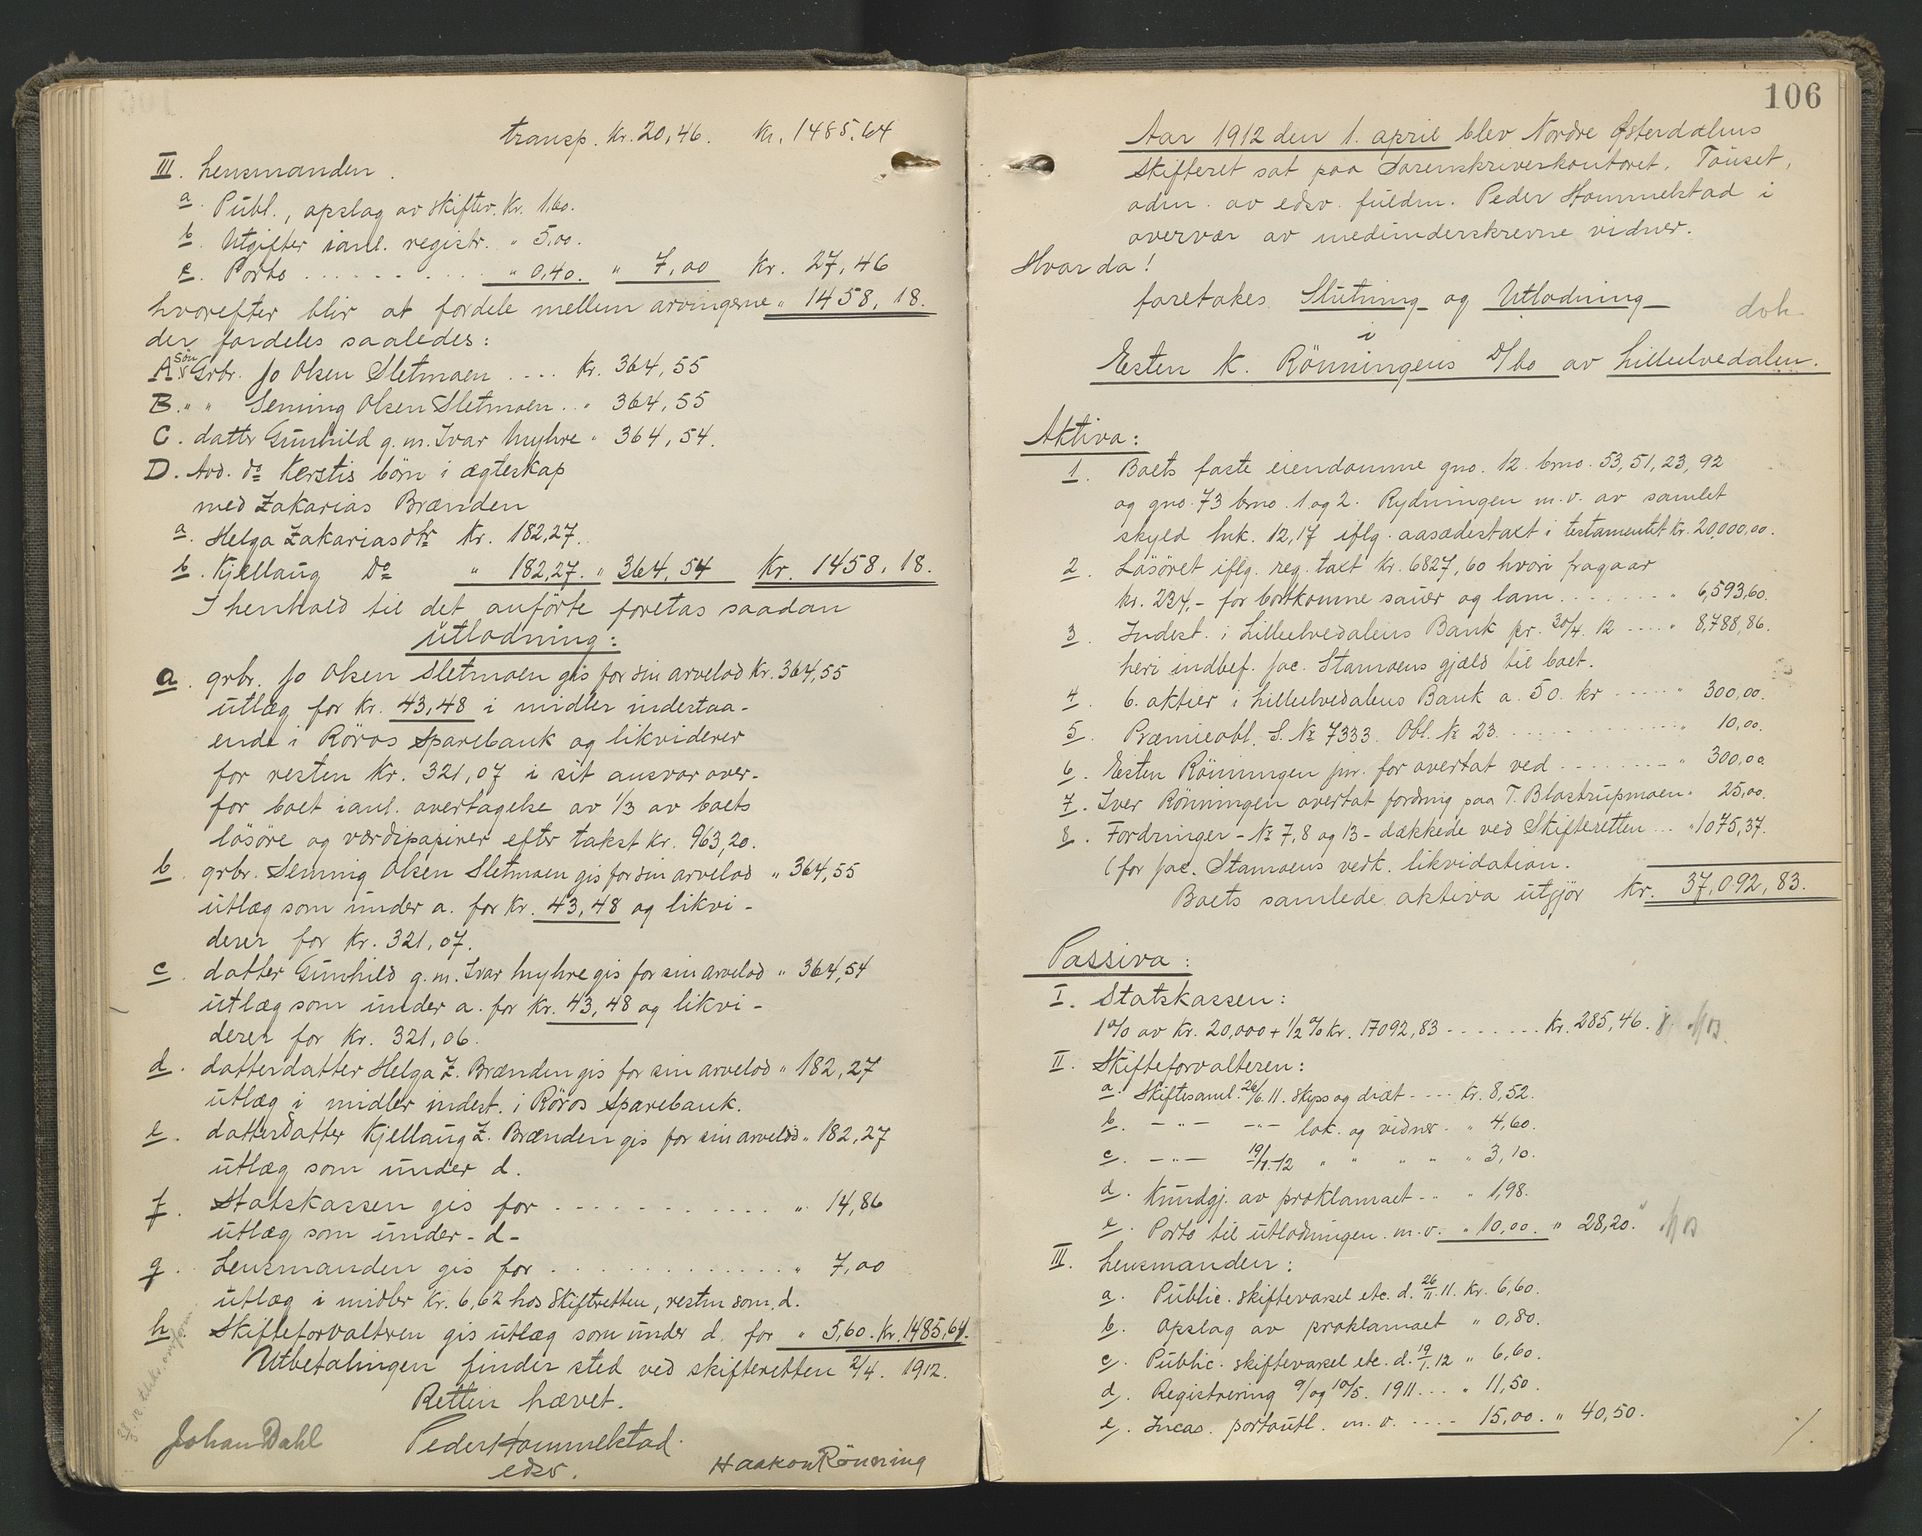 transp. Kr. 20,46. Kr. 1485,64
III. Lensmanden.
a. Publ., opslag av skifter. Kr. 1,60.
b. Utgifter ianl. registr. " 5,00.
c. Porto . . . . . . . . . " 0,40. " 7,00 Kr. 27,46
hvorefter blir at fordele mellem arvingerne " 1458,18.
der fordeles saaledes:
A. Søn Grbr. Jo Olsen Sletmoen .... Kr. 364,55
B. " " Seming Olsen Sletmoen .. " 364,55
C. datter Gunhild g.m. Ivar Myhre " 364,54.
D. Avd. do Kerstis børn i ægteskap
med Zakarias Brænden
a. Helga Zakariasdtr Kr. 182,27.
b. Kjellaug Do " 182,27. " 364,54 Kr. 1458,18.
I henhold til det anførte foretas saadan
utlodning:
a. grbr. Jo Olsen Sletmoen gis for sin arvelod Kr. 364,55
utlæg for Kr. 43,48 i midler indestaa-
ende i Røros Sparebank og likviderer
for resten Kr. 321,07 i sit ansvar over-
for boet ianl. overtagelse av 1/3 av boets
løsøre og værdipapirer efter takst Kr. 963,20.
b. grbr. Seming Olsen Sletmoen gis for sin arvelod " 364,55
utlæg som under a. for Kr. 43,48 og likvi-
derer for Kr. 321,07.
c. datter Gunhild g.m. Ivar Myhre gis for sin arvelod " 364,54
utlæg som under a. for Kr. 43,48 og likvi-
derer for Kr. 321,06.
d. datterdatter Helga Z. Brænden gis for sin arvelod " 182,27
utlæg i midler indest. i Røros Sparebank.
e. datterdatter Kjellaug Z. Brænden gis for sin arvelod " 182,27
utlæg som under d.
f. Statskassen gis for . . . . . . . . . . " 14,86
utlæg som under - d -
g. Lensmanden gis for . . . . . . . . . . " 7,00
utlæg i midler Kr. 6,62 hos Skifteretten, resten som d.
h. Skifteforvalteren gis utlæg som under d. for " 5,60. Kr. 1485,64.
Utbetalingen finder sted ved skifteretten 2/4. 1912.
Retten hævet.
Johan Dahl Peder Hommelstad. Haakon Rønning
edsv.
106
Aar 1912 den 1. april blev Nordre Østerdalens
Skifteret sat paa Sorenskriverkontoret, Tønset,
adm. av edsv. fuldm. Peder Hommelstad i
overvær av medunderskrevne vidner.
Hvor da!
foretokes Slutning og Utlodning
i
Esten K. Rønningens D/bo av Lilleelvedalen.
Aktiva:
1. Boets faste eiendomme gno. 12. brno. 53, 51, 23, 92
og gno. 73 brno. 1 og 2. Rydningen m.v. av samlet
skyld mk. 12,17 iflg. aasædestaxt i testamentet Kr. 20,000,00.
2. Løsøret iflg. reg. taxt Kr. 6827,60 hvori fragaar
Kr. 234,- for bortkomne sauer og lam . . . . . " 6,593,60.
3. Indest. i Lilleelvedalens Bank pr. 30/4. 12 ---- " 8,788,86.
heri indbef. Jac. Stamoens gjæld til boet.
4. 6. aktier i Lilleelvedalens Bank a. 50. kr ----- " 300,00.
5. Præmieobl. S. No 7333. Obl. No 23. . . . . . . " 10,00.
6. Esten Rønningen jnr. for overtat ved . . . . . " 300,00
7. Iver Rønningen overtat fordring paa T. Blostrupmoen " 25,00.
8. Fordringer - No 7, 8 og 13 - dækkede ved Skifteretten ... " 1075,37.
(for Jac. Stamoens vedk. likvidation.
Boets samlede aktiva utgjør Kr. 37,092,83.
Passiva:
I. Statskassen:
1% av Kr. 20,000 + 1/2% Kr. 17092,83 - - - - - Kr. 285,46.
II. Skifteforvalteren:
a. Skiftesaml. 26/6. 11. skyss og diæt ---- Kr. 8,52.
b. - " - - " - lok. og vidner. " 4,60.
c. - " - 19/1. 12 " " " " " 3,10.
d. Kundgj. av proklamaet - .. " 1,98.
e. Porto til utlodningen. m.v. " 10,00. " 28,20.
III. Lensmanden:
a. Public. skiftevarsel etc. d. 26/11. 11. Kr. 6,60.
b. Opslag av proklamaet " 0,80.
c. Public. skiftevarsel etc. d. 19/1. 12 " 6,60.
d. Registrering 9/ og 10/5. 1911 ... " 11,50.
e. Incas. portoutl. m.v. ---- 15,00. " 40,50.